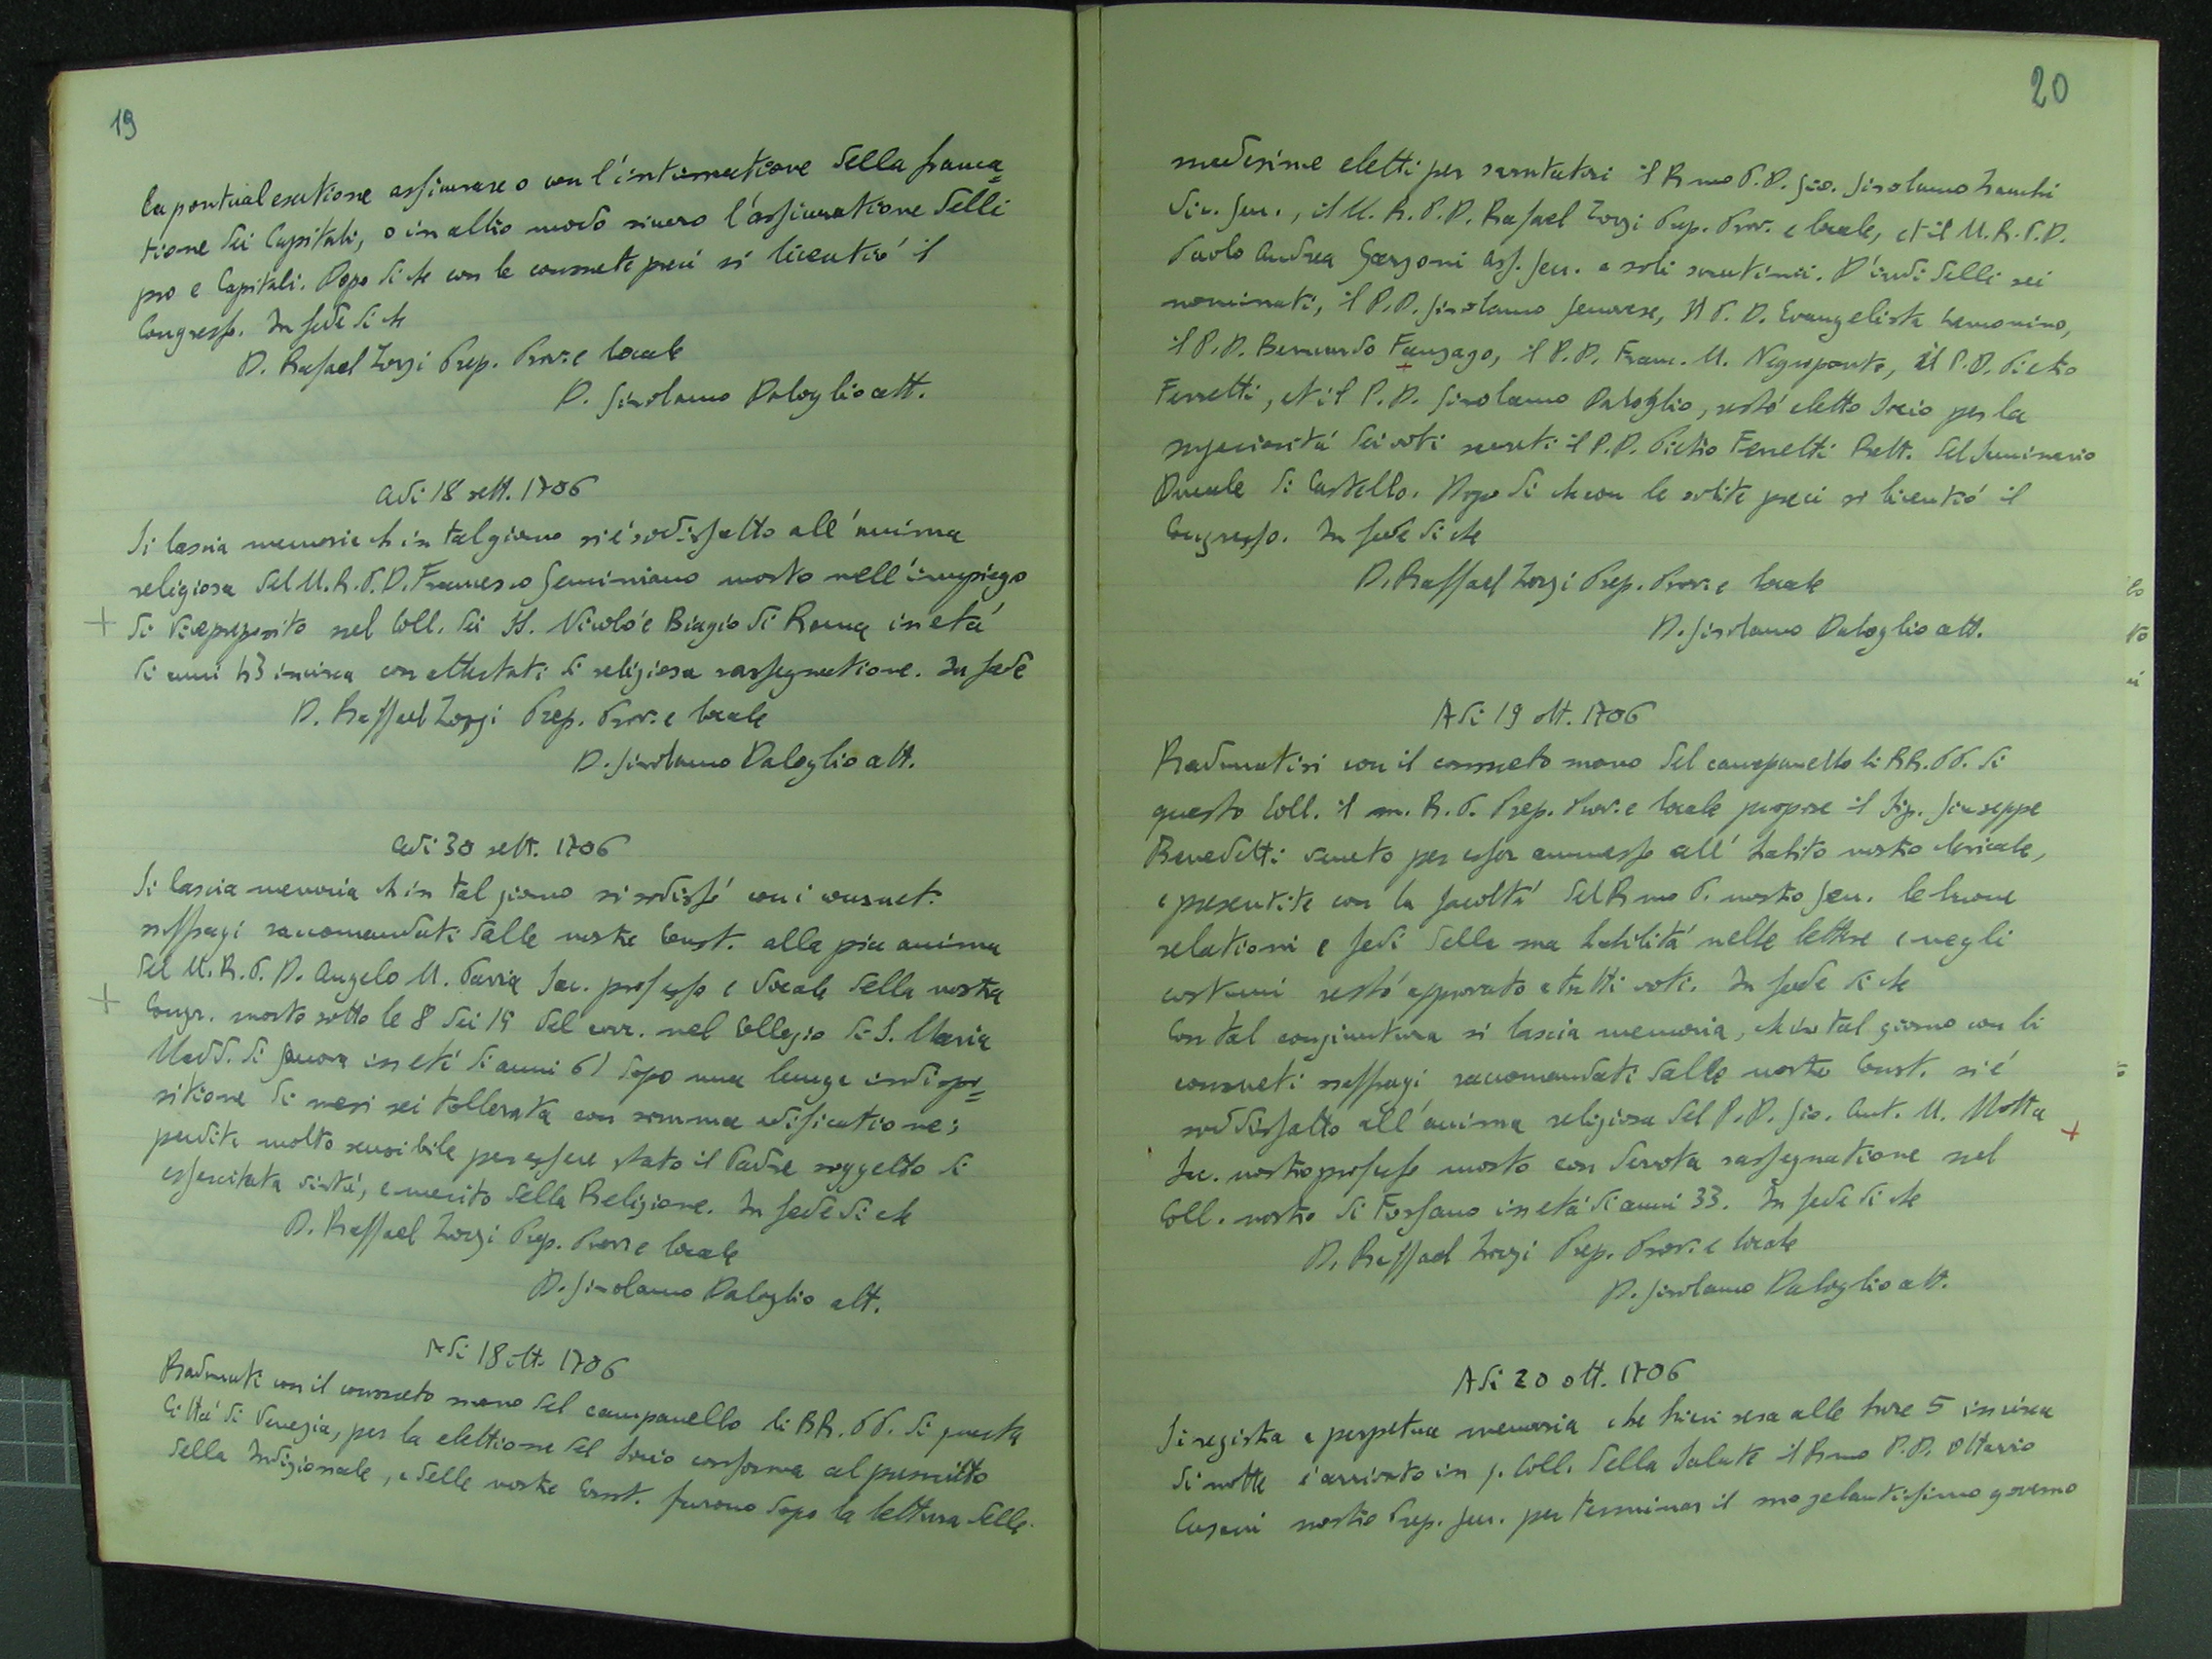 19
la pontual esecutione assicurare o con l'intimatione della franca=
tione dei Capitali, o in altro modo sicuro l'assicuratione delli
pro e Capitali. Dopo di che con le consuete preci si licentiò il
Congresso. In fede di che
D. Rafael Zorzi Prep. Prov. e locale
D. Girolamo Daloglio att.
Adi 18 sett. 1706
Si lascia memoria ch in tal giorno si è sodisfatto all'anima
religiosa del M. R. P. D. Francesco Geminiano morto nell'impiego
di Vicepreposito nel Coll. dei SS. Nicolò e Biagio di Roma in età
di anni 43 incirca con attestati di religiosa rassegnatione. In fede
D. Raffael Zorzi Prep. Prov. e locale
D. Girolamo Daloglio att.
Adi 30 sett. 1706
Si lascia memoria ch in tal giorno si sodisfé con i consuet.
suffragi raccomandati dalle nostre Const. alla pia anima
del M. R. P. D. Angelo M. Pavia Sac. professo e Vocale della nostra
Congr. morto sotto le 8 dei 19 del corr. nel Collegio di S. Maria
Madd. di Genova in età di anni 61 dopo una lunga indispo=
sitione di mesi sei tollerata con somma edificatione;
perdita molto sensibile per essere stato il Padre soggetto di
essercitata virtù, e merito della Religione. In fede di che
D. Raffael Zorzi Prep. Prov. e locale
D. Girolamo Daloglio att.
Adi 18 ott. 1706
Radunati con il consueto suono del campanello li RR. PP. di questa
Città di Venezia, per la elettione del Socio conforme al prescritto
della Indizionale, e delle nostre Const. furono dopo la lettura delle
20
medesime eletti per scrutatori il Rmo P. D. Gio. Girolamo Zanchi
Vic. Gen., il M. R. P. D. Rafael Zorzi Prep. Prov. e locale, et il M. R. P. D.
Paolo Andrea Garzoni Ass. Gen. a soli scrutinii. D'indi delli sei
nominati, il P. D. Girolamo Genovese, il P. D. Evangelista
il P. D. Bernardo Fanzago, il P. D. Franc. M. Negroponte, il P. D. Pietro
Ferretti, et il P. D. Girolamo Daloglio, restò eletto Socio per la
superiorità dei voti secreti il P. D. Pietro Ferretti Rett. del Seminario
Ducale di Castello. Dopo di che con le solite preci si licentiò il
Congresso. In fede di che
D. Raffael Zorzi Prep. Prov. e locale
D. Girolamo Daloglio att.
Adi 19 ott. 1706
Radunatisi con il consueto suono del campanello li RR. PP. di
questo Coll. il m. R. P. Prep. Prov. e locale propose il Sig. Giuseppe
Benedetti veneto per esser ammesso all'habito nostro clericale,
e presentite con la facoltà del Rmo P. nostro Gen. le buone
relationi e fedi della sua habilità nelle lettere e negli
costumi restò approvato a tutti voti. In fede di che
Con tal congiuntura si lascia memoria, ch in tal giorno con li
consueti suffragi raccomandati dalle nostre Const. si è
soddisfatto all'anima religiosa del P. D. Gio. Ant. M. Motta
Sac. nostro professo morto con devota rassegnatione nel
Coll. nostro di Fossano in età di anni 33. In fede di che
D. Raffael Zorzi Prep. Prov. e locale
D. Girolamo Daloglio att.
Adi 20 ott. 1706
Si registra a perpetua memoria che hieri sera alle hore 5 incirca
di notte è arrivato in q. Coll. della Salute il Rmo P. D. Ottavio
Cusani nostro Prep. Gen. per terminar il suo zelantissimo governo